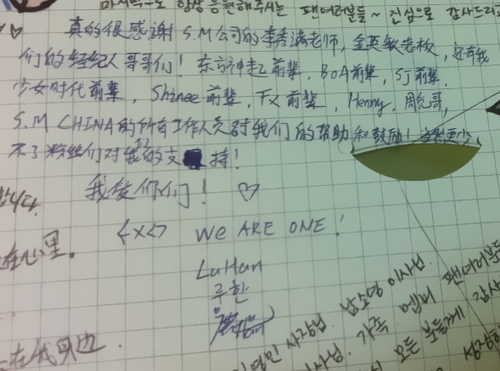 마지막으로 항상 응원해주시는 팬 여러분들~ 진심으로 감사드리
♡ 真的很感谢 S.M公司的李秀满老师, 金英敏老板, 还有我
们的经纪人哥哥们! 东方神起前辈, BoA前辈, SJ前辈,
少女时代前辈, Shinee前辈, FX前辈, Henny, 周觅哥,
S.M CHINA的所有工作人员对我们的帮助和鼓励! 当然更少
不了粉丝们对我们的支持!
我爱你们! ♡
니다.
在心里.
<x> WE ARE ONE!
LuHan
루한
在我身边.
영민 사장님 남소영 이사님.
이사님. 가족 멤버 팬여러분들
모든 분들께 감사